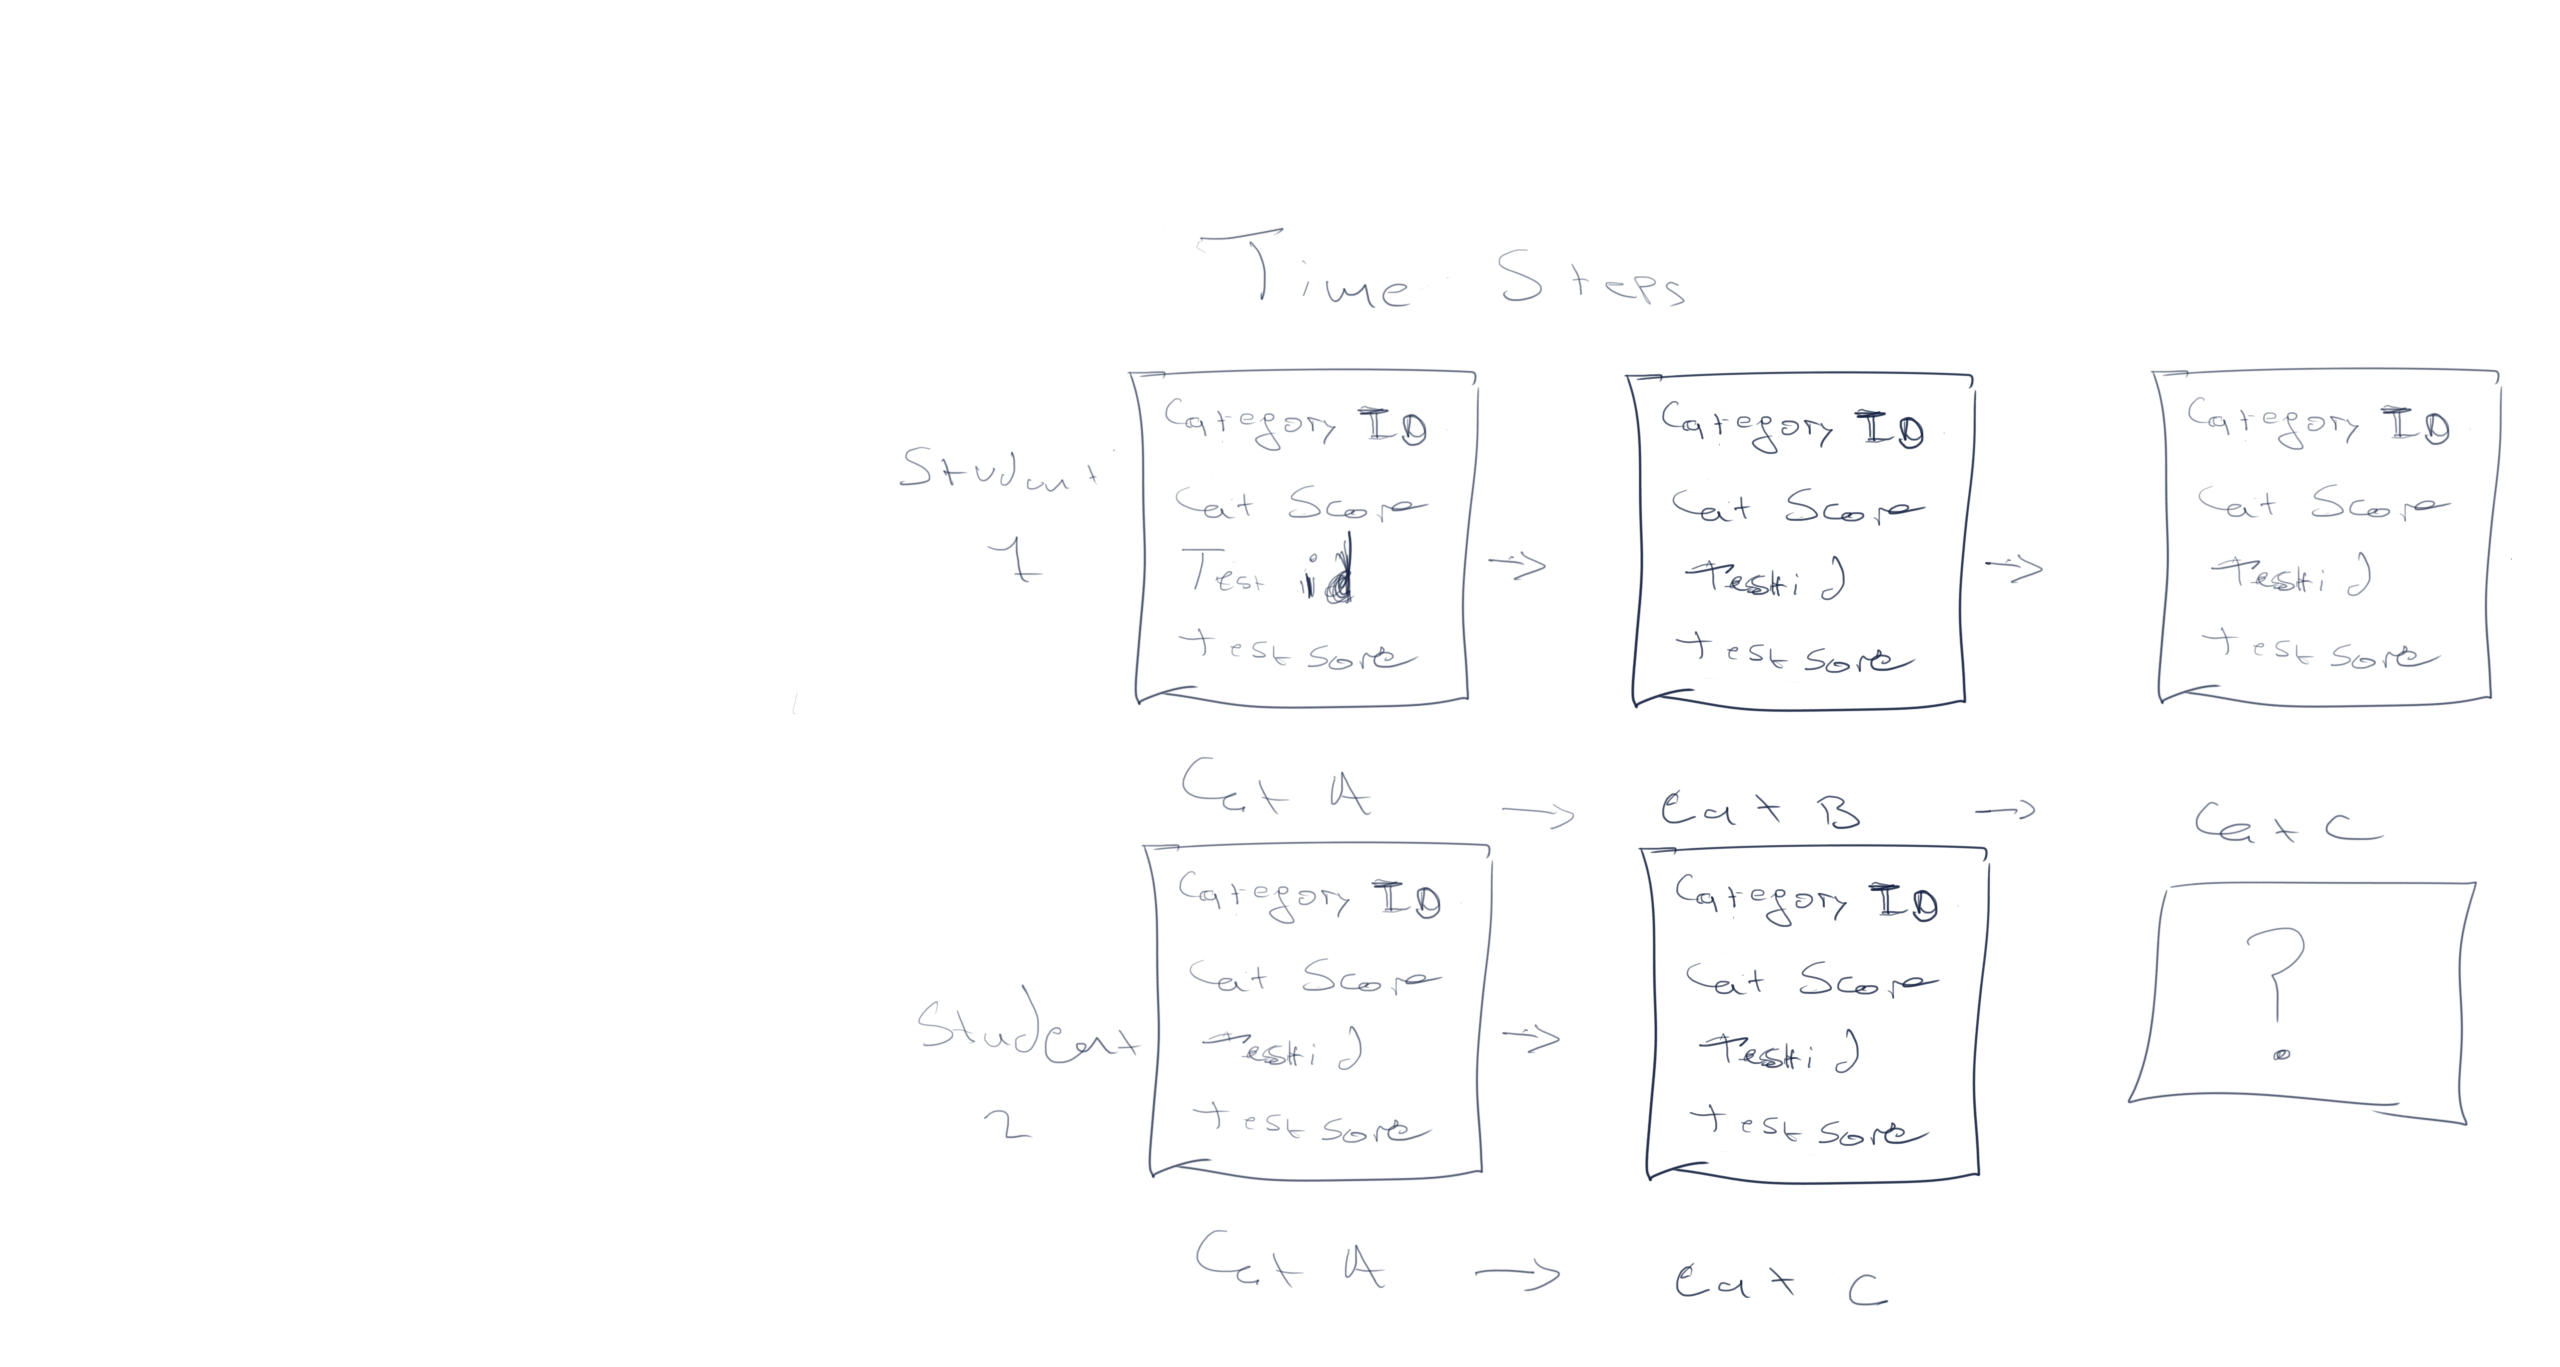 Time Steps
Student
1
Category ID
Cat Score
Test id
test sore
→
Category ID
Cat Score
Test id
test sore
→
Category ID
Cat Score
Test id
test sore
Cat A → Cat B → Cat C
Student
2
Category ID
Cat Score
Test id
test sore
→
Category ID
Cat Score
Test id
test sore
?
Cat A → Cat C